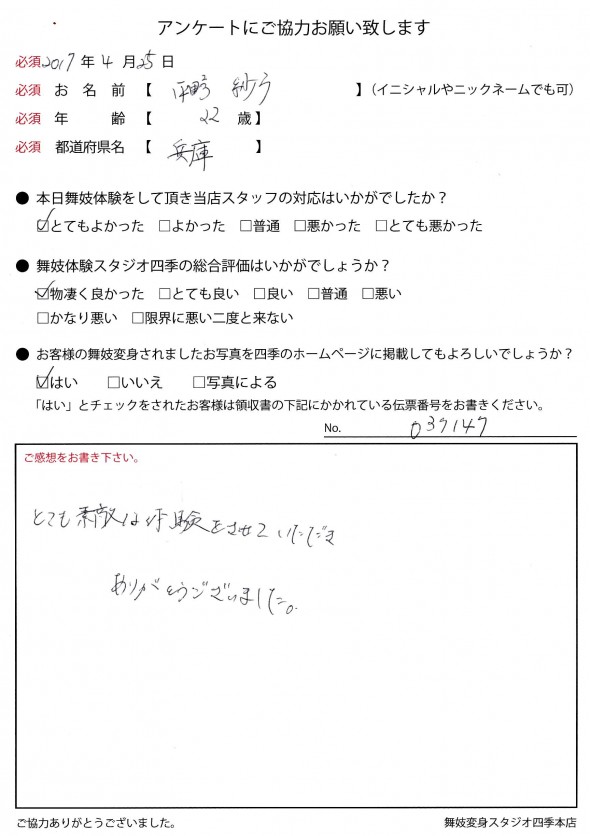 アンケートにご協力お願い致します
必須 2017 年 4 月 25 日
必須 お 名 前 【 】 (イニシャルやニックネームでも可)
必須 年 齢 【 22 歳】
必須 都道府県名 【 兵庫 】
● 本日舞妓体験をして頂き当店スタッフの対応はいかがでしたか?
☑とてもよかった □よかった □普通 □悪かった □とても悪かった
● 舞妓体験スタジオ四季の総合評価はいかがでしょうか?
☑物凄く良かった □とても良い □良い □普通 □悪い
□かなり悪い □限界に悪い二度と来ない
● お客様の舞妓変身されましたお写真を四季のホームページに掲載してもよろしいでしょうか?
☑はい □いいえ □写真による
「はい」とチェックをされたお客様は領収書の下記にかかれている伝票番号をお書きください。
No. 037147
ご感想をお書き下さい。
とても素敵な体験をさせていただき
ありがとうございました。
ご協力ありがとうございました。 舞妓変身スタジオ四季本店